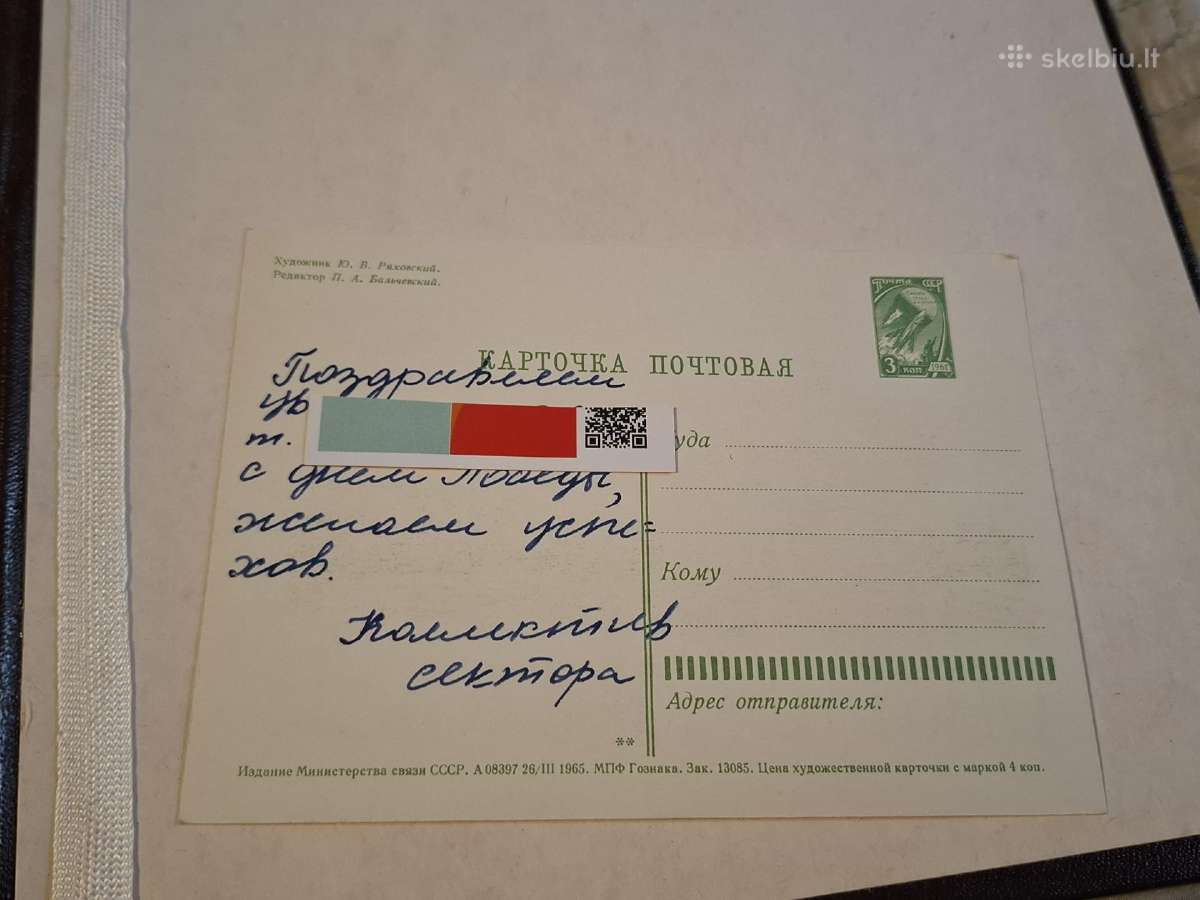 skelbiu.lt
Художник Ю. В. Ряховский.
Редактор П. А. Бальчевский.
Почта СССР
3 коп
КАРТОЧКА ПОЧТОВАЯ
Поздравляем
ув
т.
с днем Победы,
желаем успе=
хов.
Коллектив
сектора
уда
Кому
Адрес отправителя:
**
Издание Министерства связи СССР. А 08397 26/III 1965. МПФ Гознака. Зак. 13085. Цена художественной карточки с маркой 4 коп.